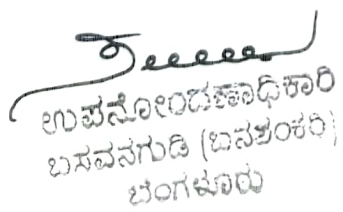 ಉಪನೋಂದಣಾಧಿಕಾರಿ
ಬಸವನಗುಡಿ (ಬನಶಂಕರಿ)
ಬೆಂಗಳೂರು